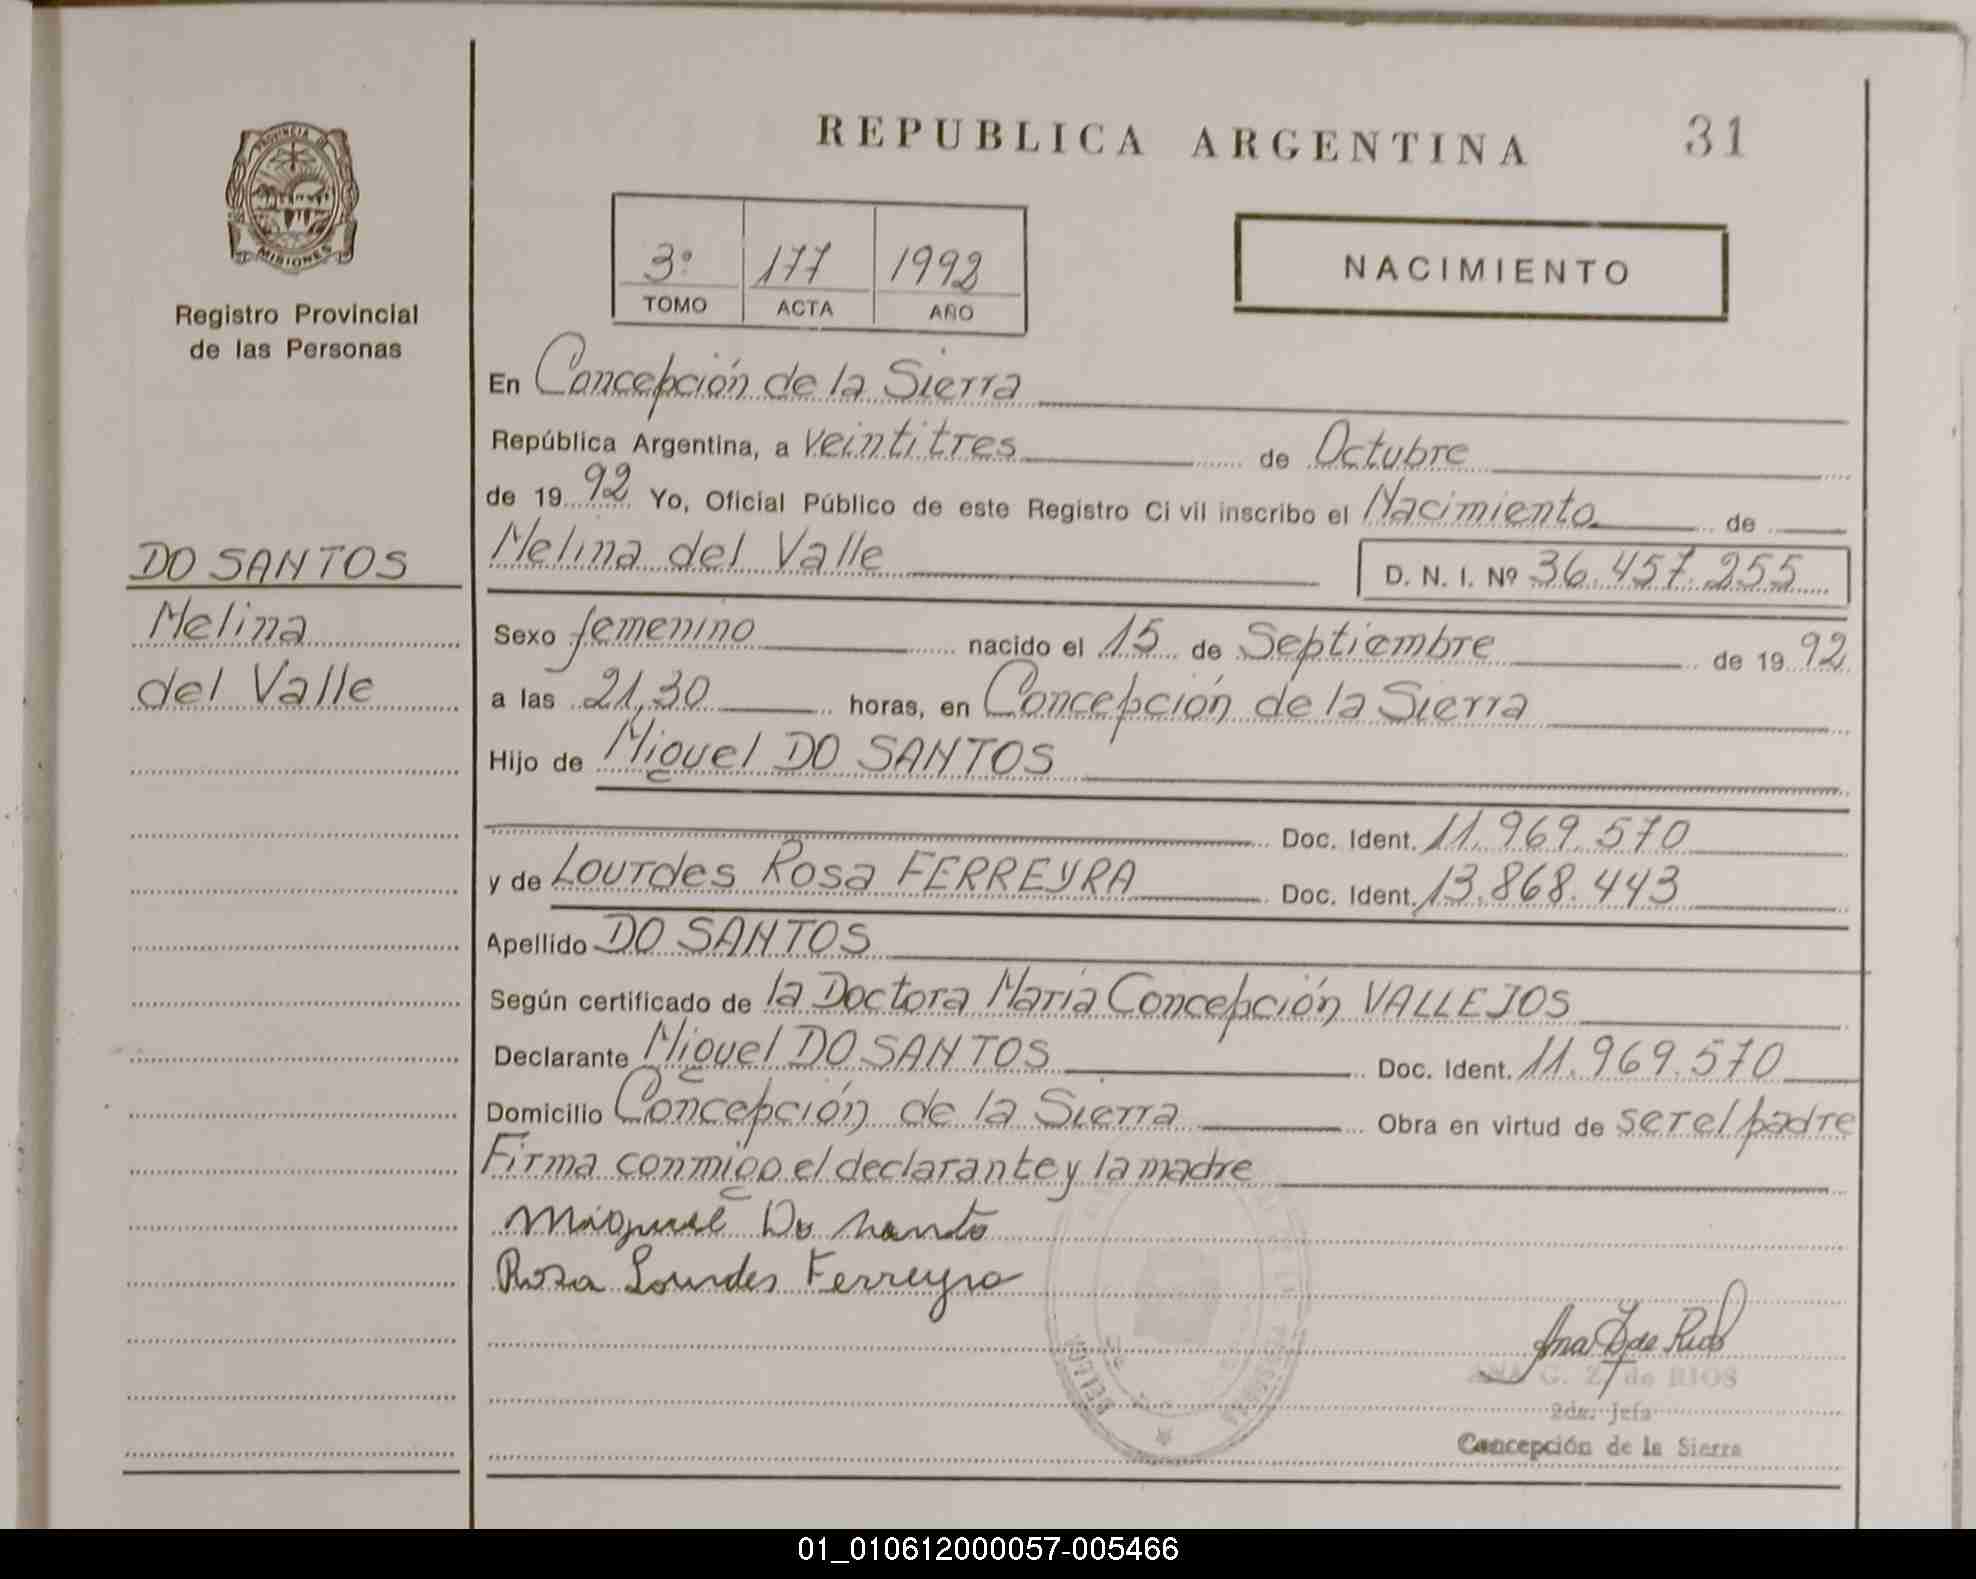 REPUBLICA ARGENTINA 31
PROVINCIA DE
MISIONES
Registro Provincial
de las Personas
3º 177 1992
TOMO ACTA AÑO
NACIMIENTO
En Concepción de la Sierra
República Argentina, a veintitres de Octubre
de 19 92 Yo, Oficial Público de este Registro Ci vil inscribo el Nacimiento de
Melina del Valle D. N. I. Nº 36.457.255
DO SANTOS
Melina
del Valle
Sexo femenino nacido el 15 de Septiembre de 19 92
a las 21,30 horas, en Concepción de la Sierra
Hijo de Miguel DO SANTOS
Doc. Ident. 11.969.570
y de Lourdes Rosa FERREYRA Doc. Ident. 13.868.443
Apellido DO SANTOS
Según certificado de la Doctora María Concepción VALLEJOS
Declarante Miguel DO SANTOS Doc. Ident. 11.969.570
Domicilio Concepción de la Sierra Obra en virtud de ser el padre
Firma conmigo el declarante y la madre
Miguel Do santo
Rosa Lourdes Ferreyra
Ana de Rios
ANA G. Z. de RIOS
2da. Jefa
Concepción de la Sierra
01_010612000057-005466